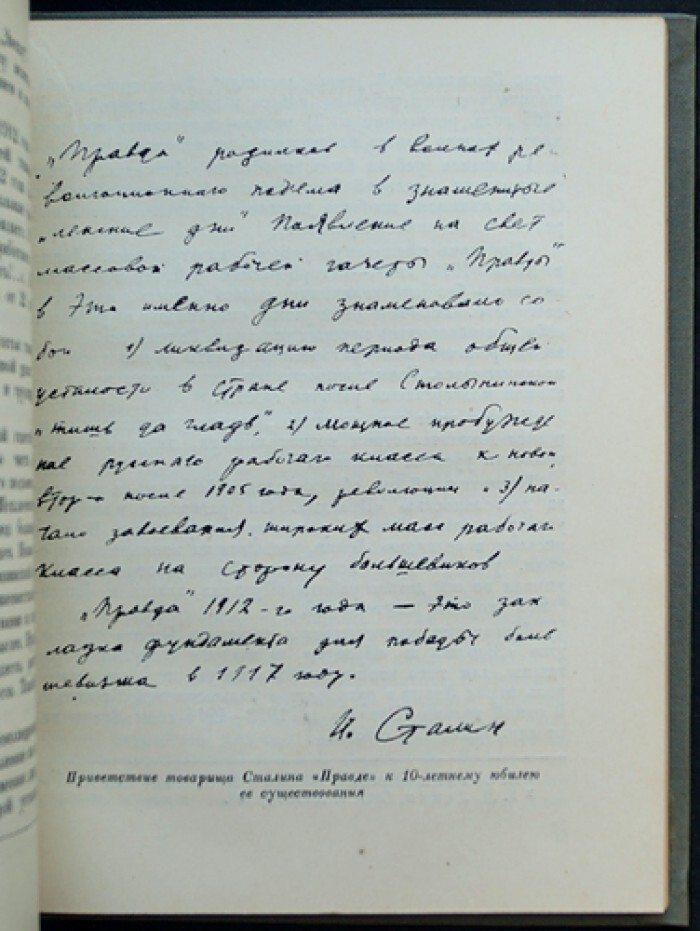 „Правда" родилась в волнах ре-
волюционного подъема в знаменитые
„ленские дни" Появление на свет
массовой рабочей газеты „Правды"
в эти именно дни знаменовало со
бой 1) ликвидацию периода общей
усталости в стране после Столыпинской
„тишь да гладь", 2) мощное пробужде
ние русского рабочего класса к новой,
второй после 1905 года, революции и 3) на-
чало завоевания широких масс рабочего
класса на сторону большевиков
„Правда" 1912-го года — это зак
ладка фундамента для победы боль
шевизма в 1917 году.
И. Сталин
Приветствие товарища Сталина «Правде» к 10-летнему юбилею
ее существования